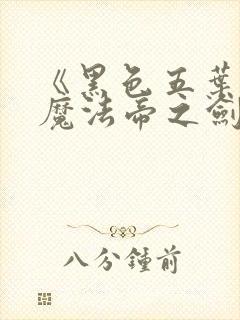 《黑色五葉
魔法帝之劍
八分鐘前